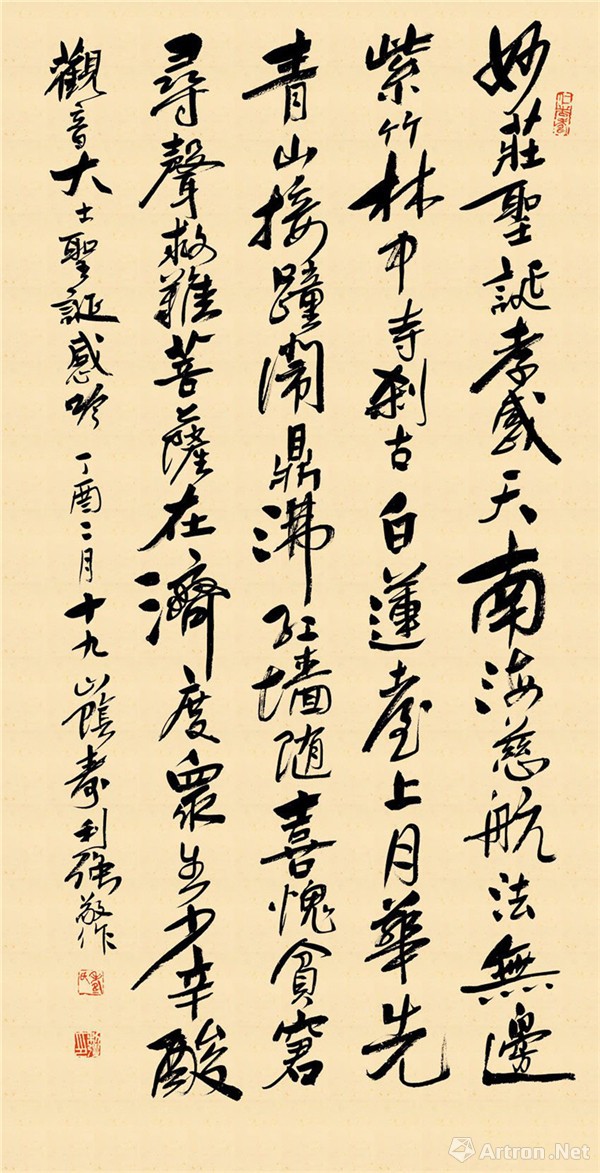 妙莊聖誕孝感天南海慈航法無邊
紫竹林中寺刹古白蓮臺上月華先
青山接踵鬧鼎沸紅墻随喜愧貪窘
尋聲救難菩薩在濟度眾生少辛酸
觀音大士聖誕感吟丁酉二月十九山陰壽利強敬作
Artron.Net